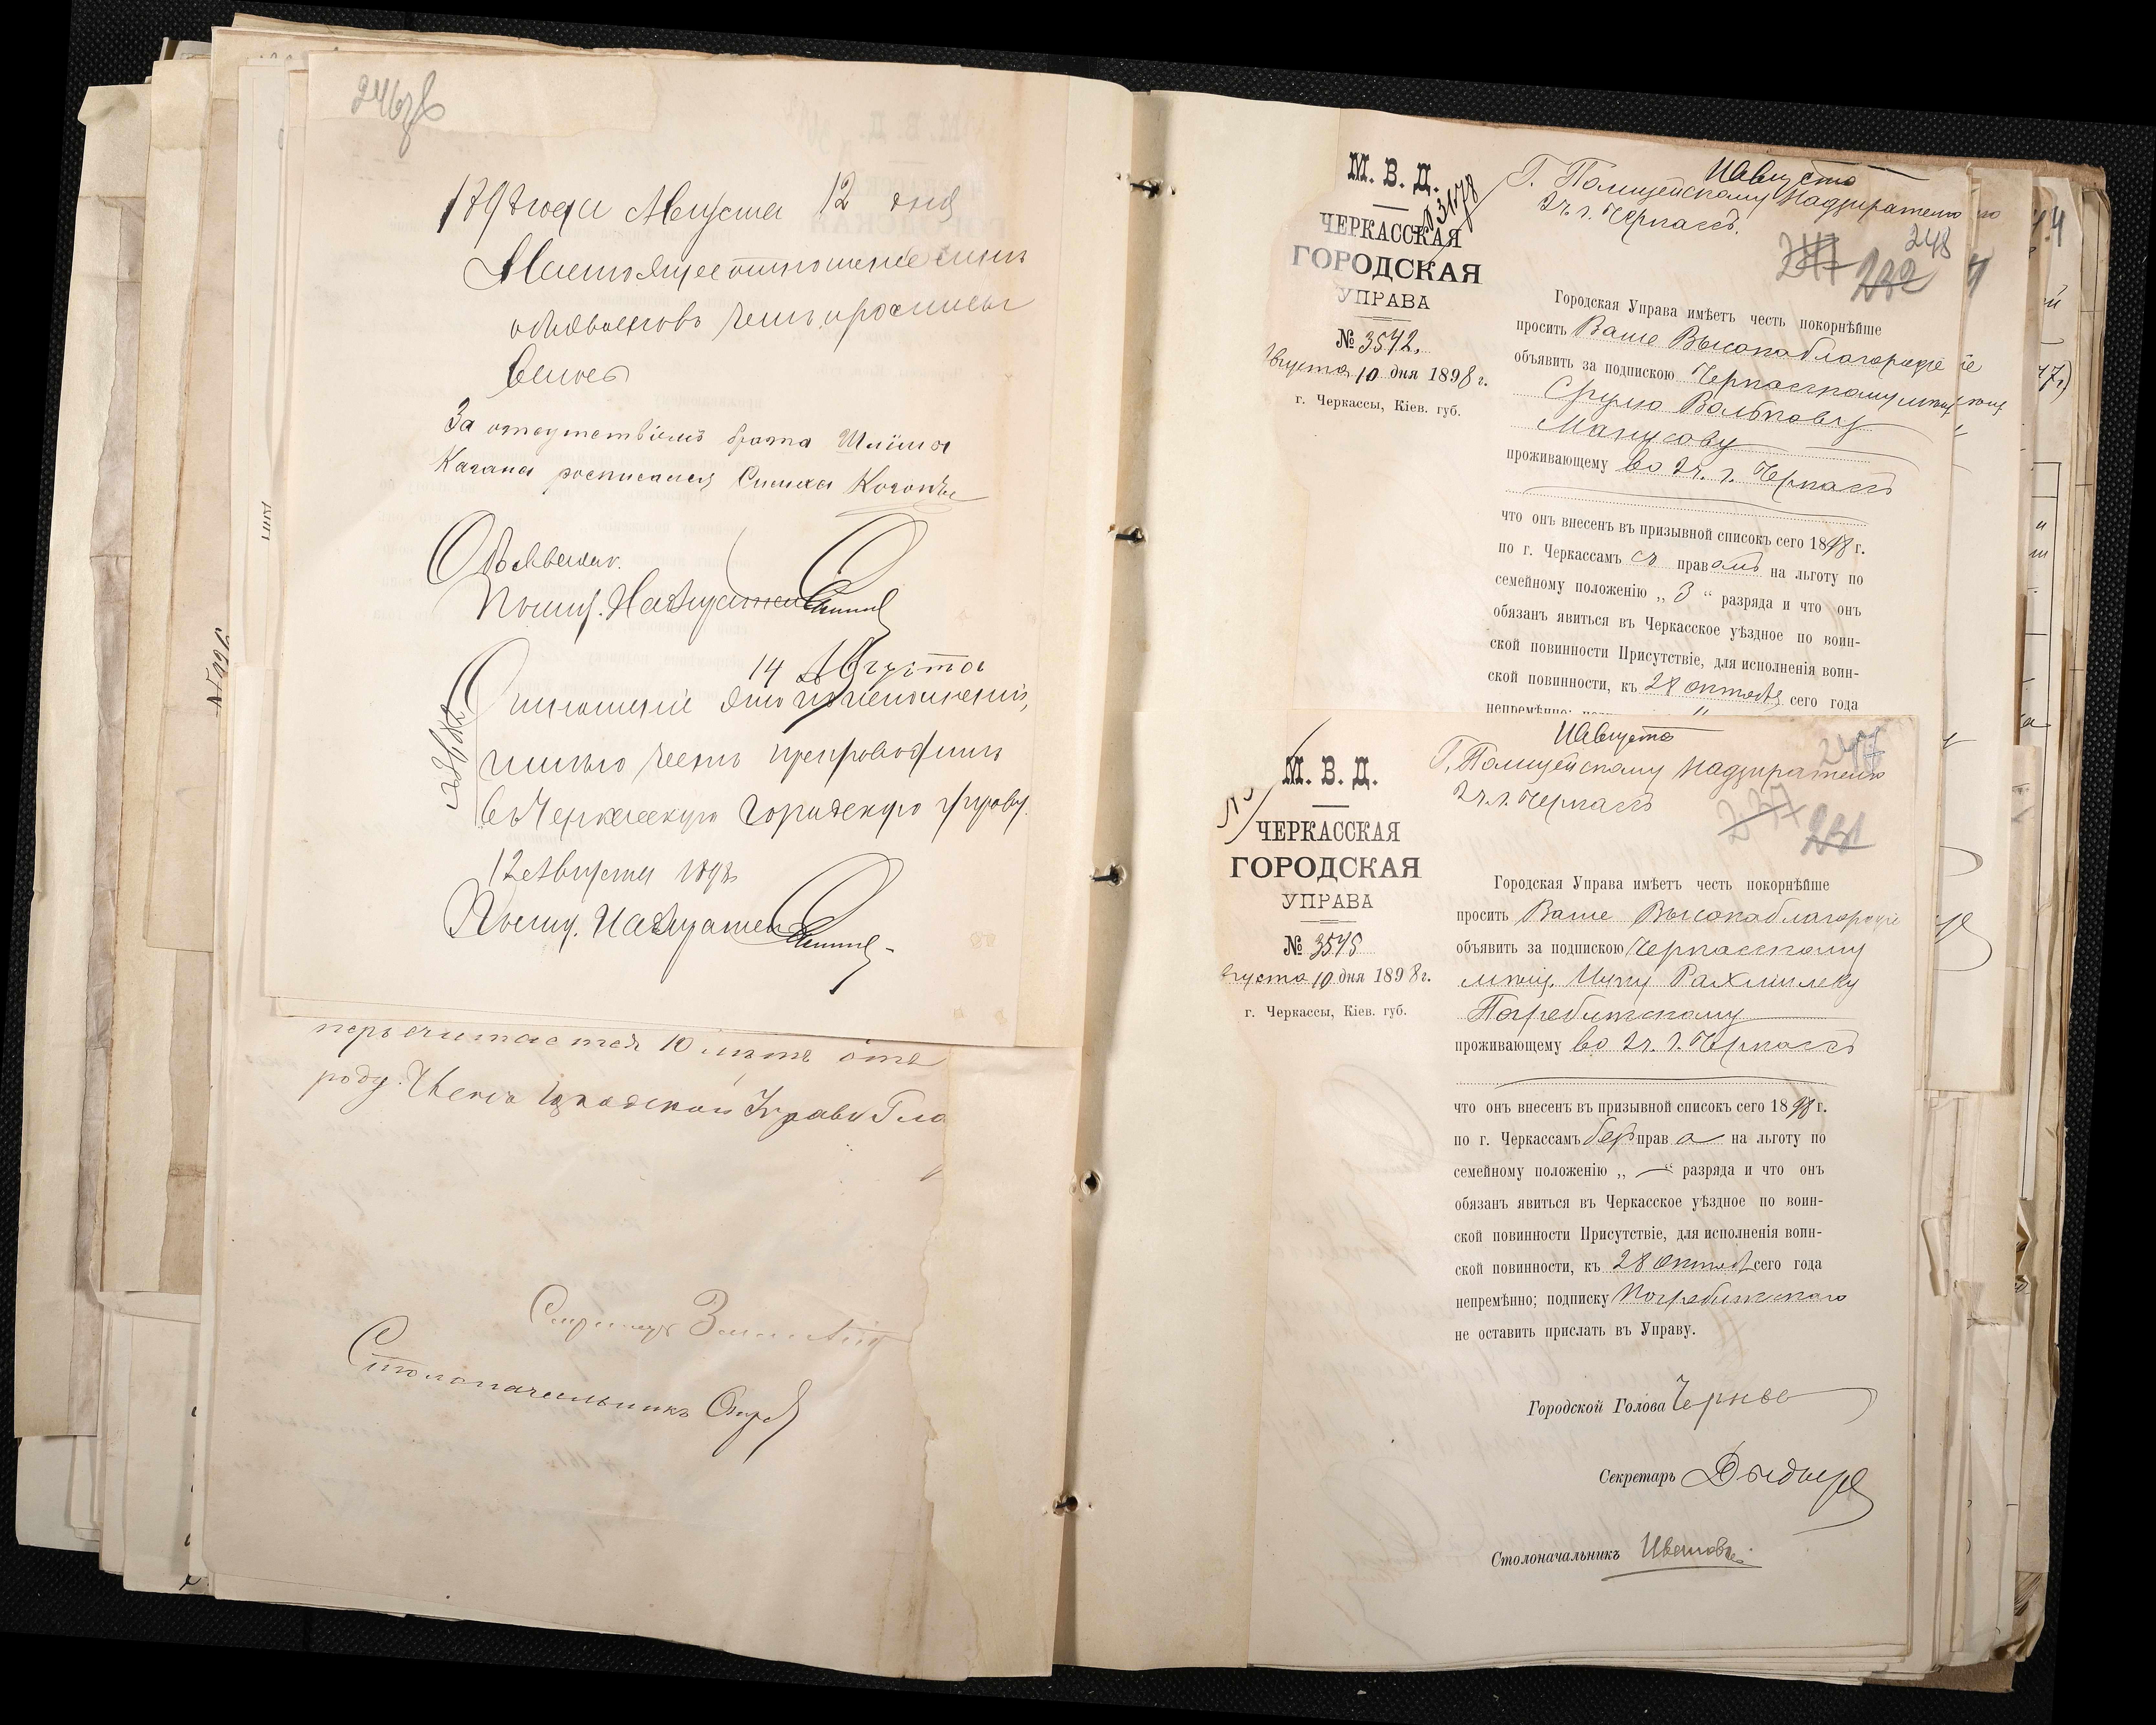 246об
1898 года Августа 12 дня
Настоящее отношение
объявлено в чем и росписы
ваюсь
За отсутствіемъ брата Шліома
Кагана росписался Симха Коганъ
Объявилъ.
Полиц. Надзиратель
14 Августа
Отношеніе это по исполненіи,
имѣю честь препроводить
въ Черкасскую Городскую Управу.
12 Августа 1898
Полиц. Надзиратель
10 лѣтъ отъ
роду. Членъ Городской Управы
Секретарь
Столоначальникъ
М. В. Д.
ЧЕРКАССКАЯ
ГОРОДСКАЯ
УПРАВА
№ 3542.
Августа 10 дня 1898 г.
г. Черкассы, Кіев. губ.
11 Августа
Г. Полицейскому Надзирателю
2 ч. г. Черкассъ.
248
232
Городская Управа имѣетъ честь покорнѣйше
просить Ваше Высокоблагородіе
объявить за подпискою Черкасскому мѣщ.
Срулю Волькову
Манусову
проживающему во 2 ч. г. Черкассъ
что онъ внесенъ въ призывной списокъ сего 1898 г.
по г. Черкассамъ съ правомъ на льготу по
семейному положенію „ 3 “ разряда и что онъ
обязанъ явиться въ Черкасское уѣздное по воин-
ской повинности Присутствіе, для исполненія воин-
ской повинности, къ 28 октября сего года
непремѣнно;
М. В. Д.
ЧЕРКАССКАЯ
ГОРОДСКАЯ
УПРАВА
№ 3545
Августа 10 дня 1898 г.
г. Черкассы, Кіев. губ.
11 Августа
Г. Полицейскому Надзирателю
2 ч. г. Черкассъ
247
237
231
Городская Управа имѣетъ честь покорнѣйше
просить Ваше Высокоблагородіе
объявить за подпискою Черкасскому
мѣщ. Ицку Рахмилеву
Погребитскому
проживающему во 2 ч. г. Черкассъ
что онъ внесенъ въ призывной списокъ сего 1898 г.
по г. Черкассамъ безъ права на льготу по
семейному положенію „ — “ разряда и что онъ
обязанъ явиться въ Черкасское уѣздное по воин-
ской повинности Присутствіе, для исполненія воин-
ской повинности, къ 28 октября сего года
непремѣнно; подписку Погребитскаго
не оставить прислать въ Управу.
Городской Голова
Секретарь
Столоначальникъ